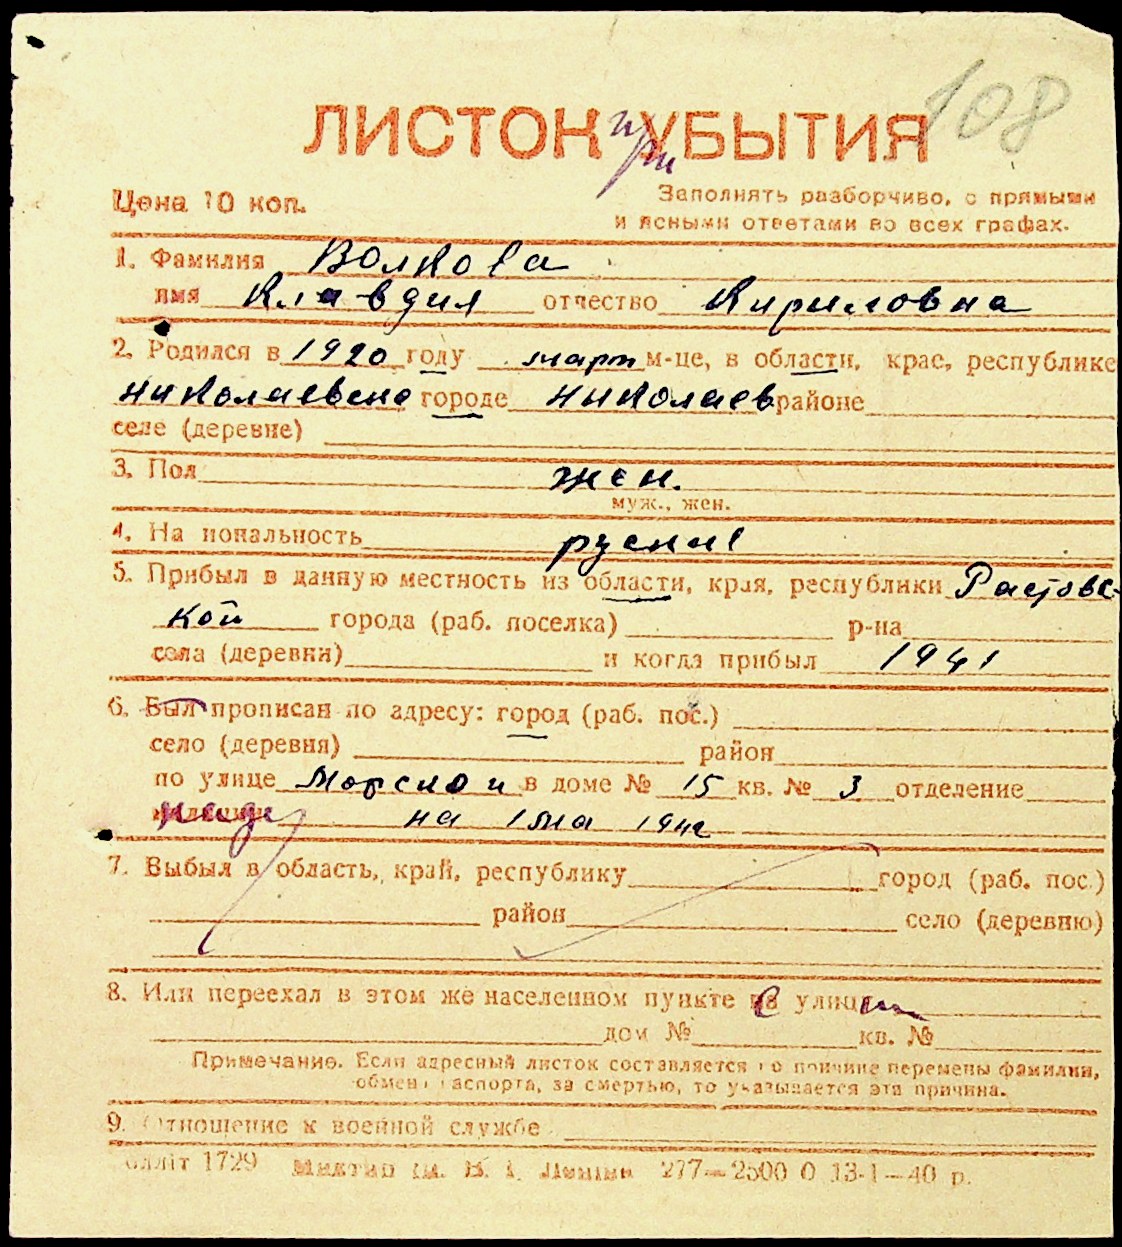 108
ЛИСТОК при УБЫТИЯ
Цена 10 коп.
Заполнять разборчиво, с прямыми
и ясными ответами во всех графах.
1. Фамилия Волкова
имя Клавдия отчество Кириловна
2. Родился в 1920 году март м-це, в области, крае, республике
Николаевске городе Николаев районе
селе (деревне)
3. Пол жен.
муж., жен.
4. На иональность руская
5. Прибыл в данную местность из области, края, республики Растовс-
кой города (раб. поселка) р-на
села (деревни) и когда прибыл 1941
6. Был прописан по адресу: город (раб. пос.)
село (деревня) район
по улице Морской в доме № 15 кв. № 3 отделение
на 1 ма 1942
7. Выбыл в область, край, республику город (раб. пос.)
район село (деревню)
8. Или переехал в этом же населенном пункте с улицы
дом № кв. №
Примечание. Если адресный листок составляется по причине перемены фамилии,
обмена паспорта, за смертью, то указывается эта причина.
9. Отношение к военной службе
1729 277—2500 0 13-1—40 р.